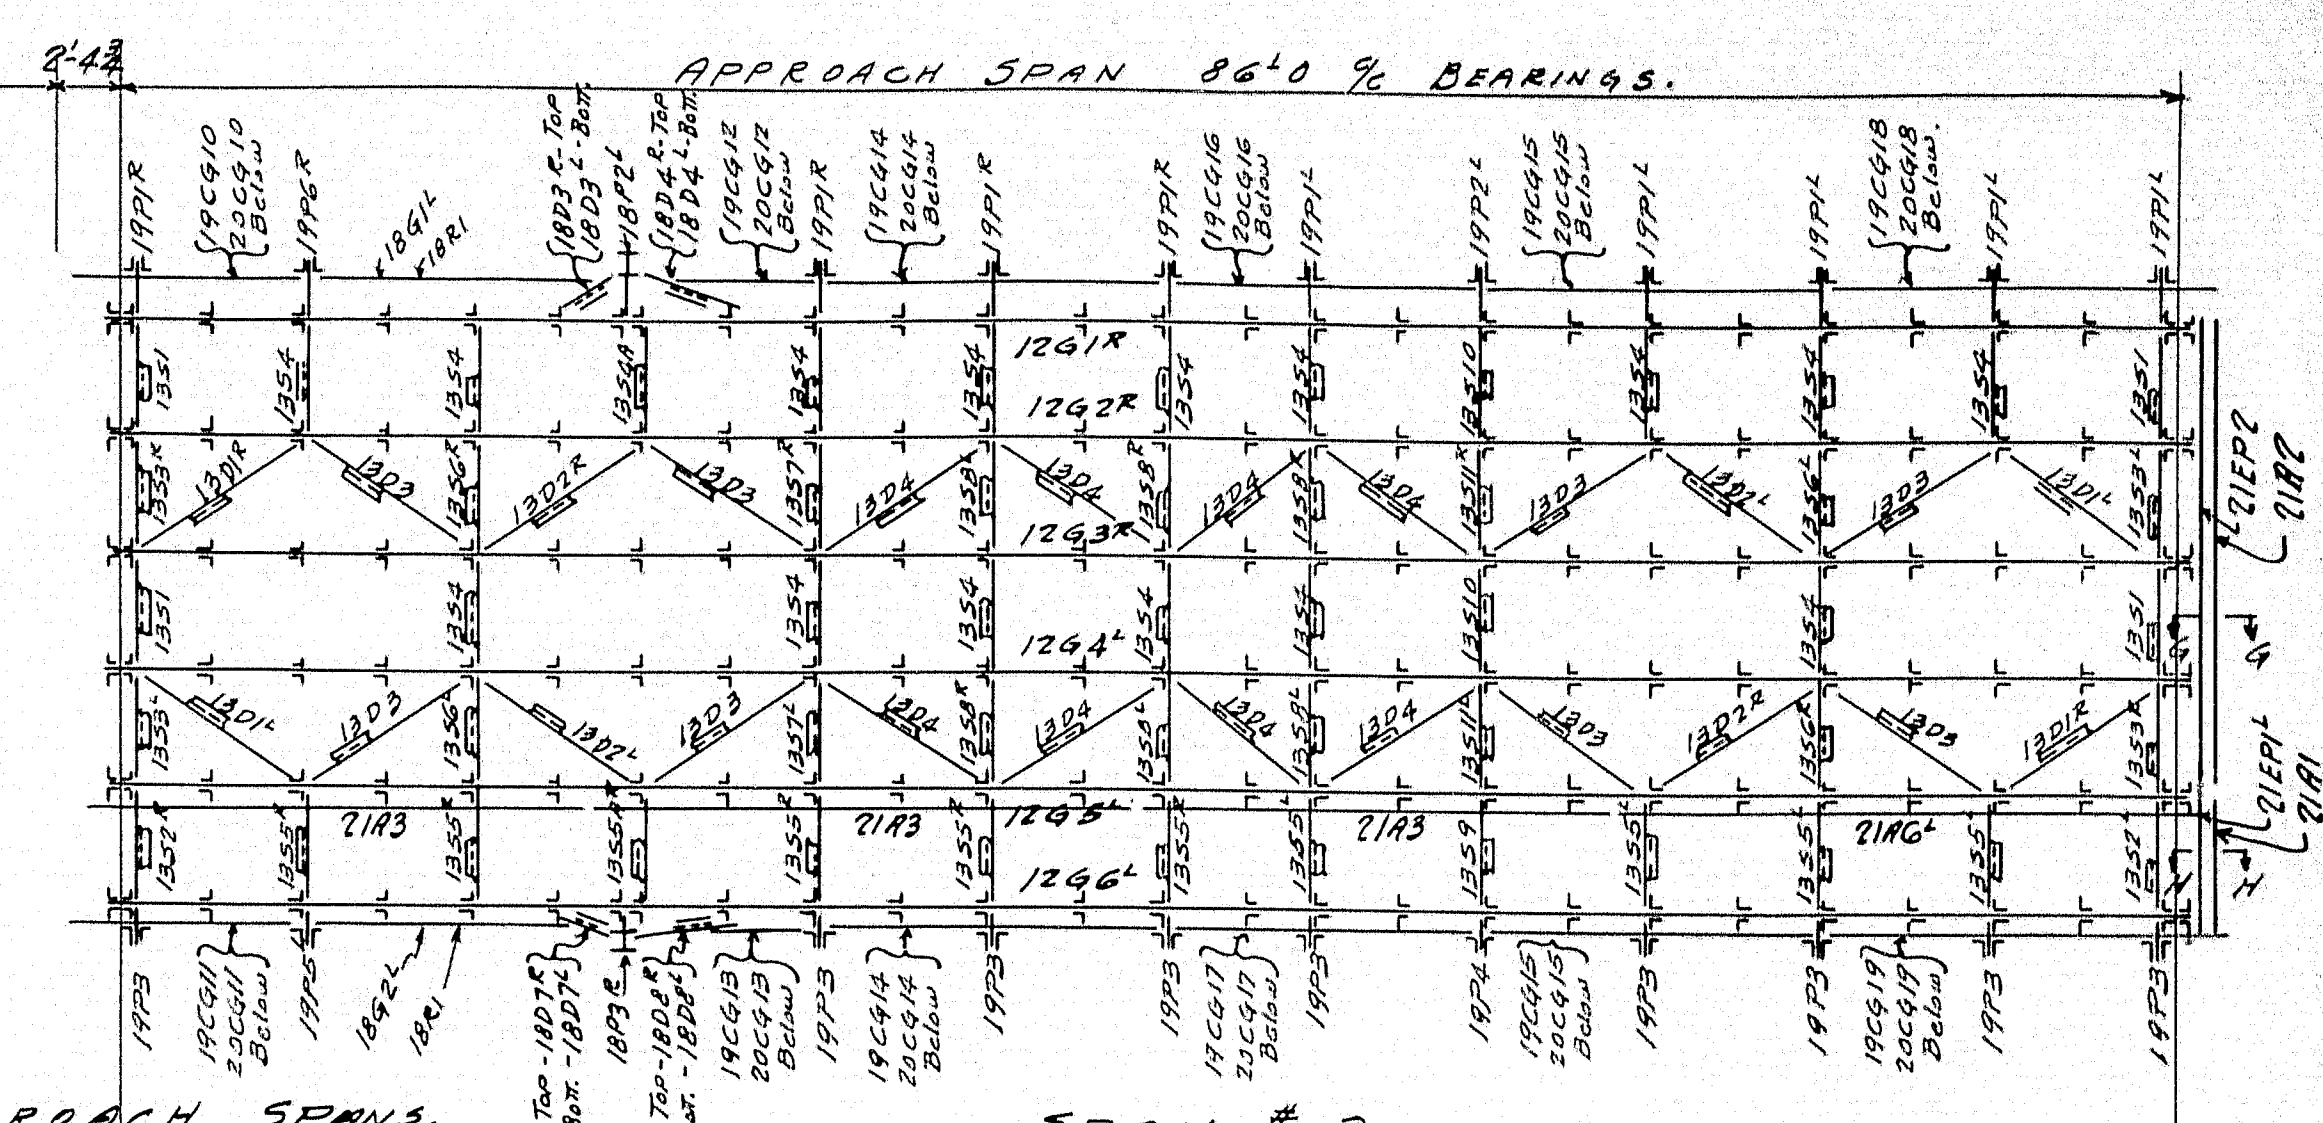 2'-4¾
APPROACH SPAN 86'-0 c/c BEARINGS.
19P1R
19CG10
20CG10
Below
19P6R
18G1L
18R1
18D3R-Top
18D3L-Bott.
18P2L
18D4R-Top
18D4L-Bott.
19CG12
20CG12
Below
19P1R
19CG14
20CG14
Below
19P1R
19P1R
19CG16
20CG16
Below
19P1L
19P2L
19CG15
20CG15
Below
19P1L
19P1L
19CG18
20CG18
Below.
19P1L
19P1L
12G1R
13S1
13S4
13S4
13S4A
13S4
13S4
13S4
13S4
13S10
13S4
13S4
13S4
13S1
12G2R
13S3R
13D1R
13D3
13S6R
13D2R
13D3
13S7R
13D4
13S8L
13D4
13S8R
13D4
13S8R
13D4
13S11R
13D3
13D2L
13S6L
13D3
13D1L
13S3L
12G3R
21EP2
21A2
13S1
13S4
13S4
13S4
13S4
13S4
13S10
13S4
13S1
12G4L
G
G
13S3L
13D1L
13D3
13S6L
13D2L
13D3
13S7L
13D4
13S8R
13D4
13S8L
13D4
13S8L
13D4
13S11L
13D3
13D2R
13S6R
13D3
13D1R
13S3R
21EP1L
21A1
21A3
21A3
12G5L
21A3
21A6L
13S2R
13S5R
13S5R
13S5AR
13S5R
13S5R
13S5R
13S5L
13S9
13S5L
13S5L
13S5L
13S2L
12G6L
H
H
19P3
19CG11
20CG11
Below
19P5L
18G2L
18R1
Top-18D7R
Bott.-18D7L
18P3R
Top-18D8R
ott.-18D8L
19CG13
20CG13
Below
19P3
19CG14
20CG14
Below
19P3
19P3
19CG17
20CG17
Below
19P3
19P4
19CG15
20CG15
Below
19P3
19P3
19CG19
20CG19
Below
19P3
19P3
ROACH SPANS.